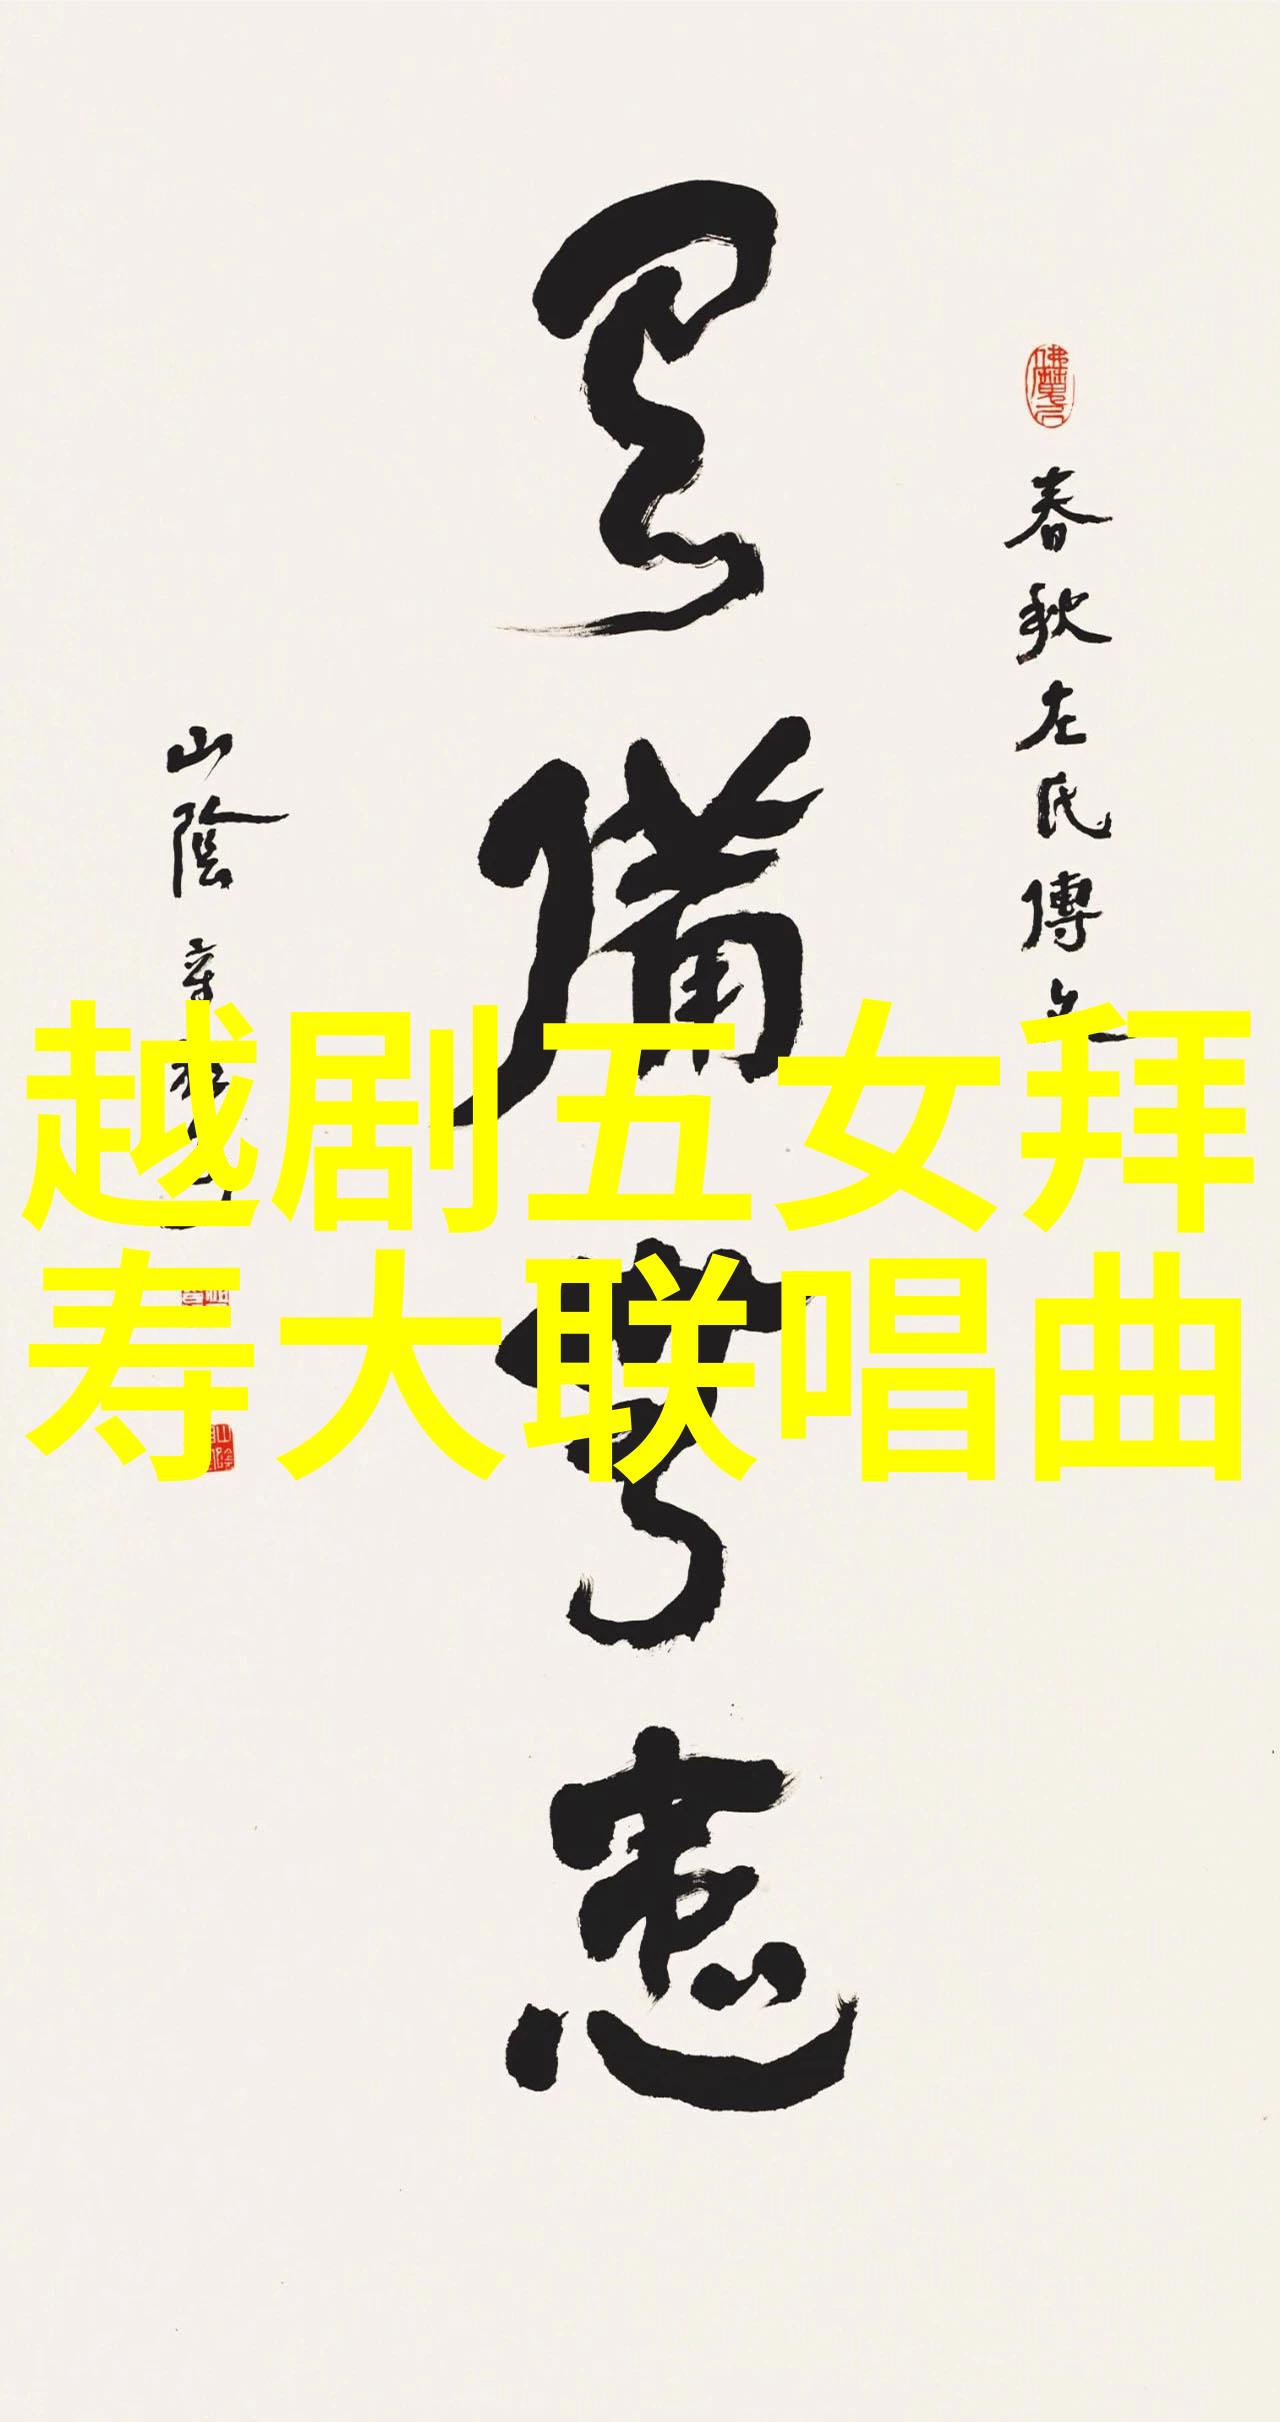 春秋左氏傳
有備無患
山陰
越剧五女拜
寿大联唱曲